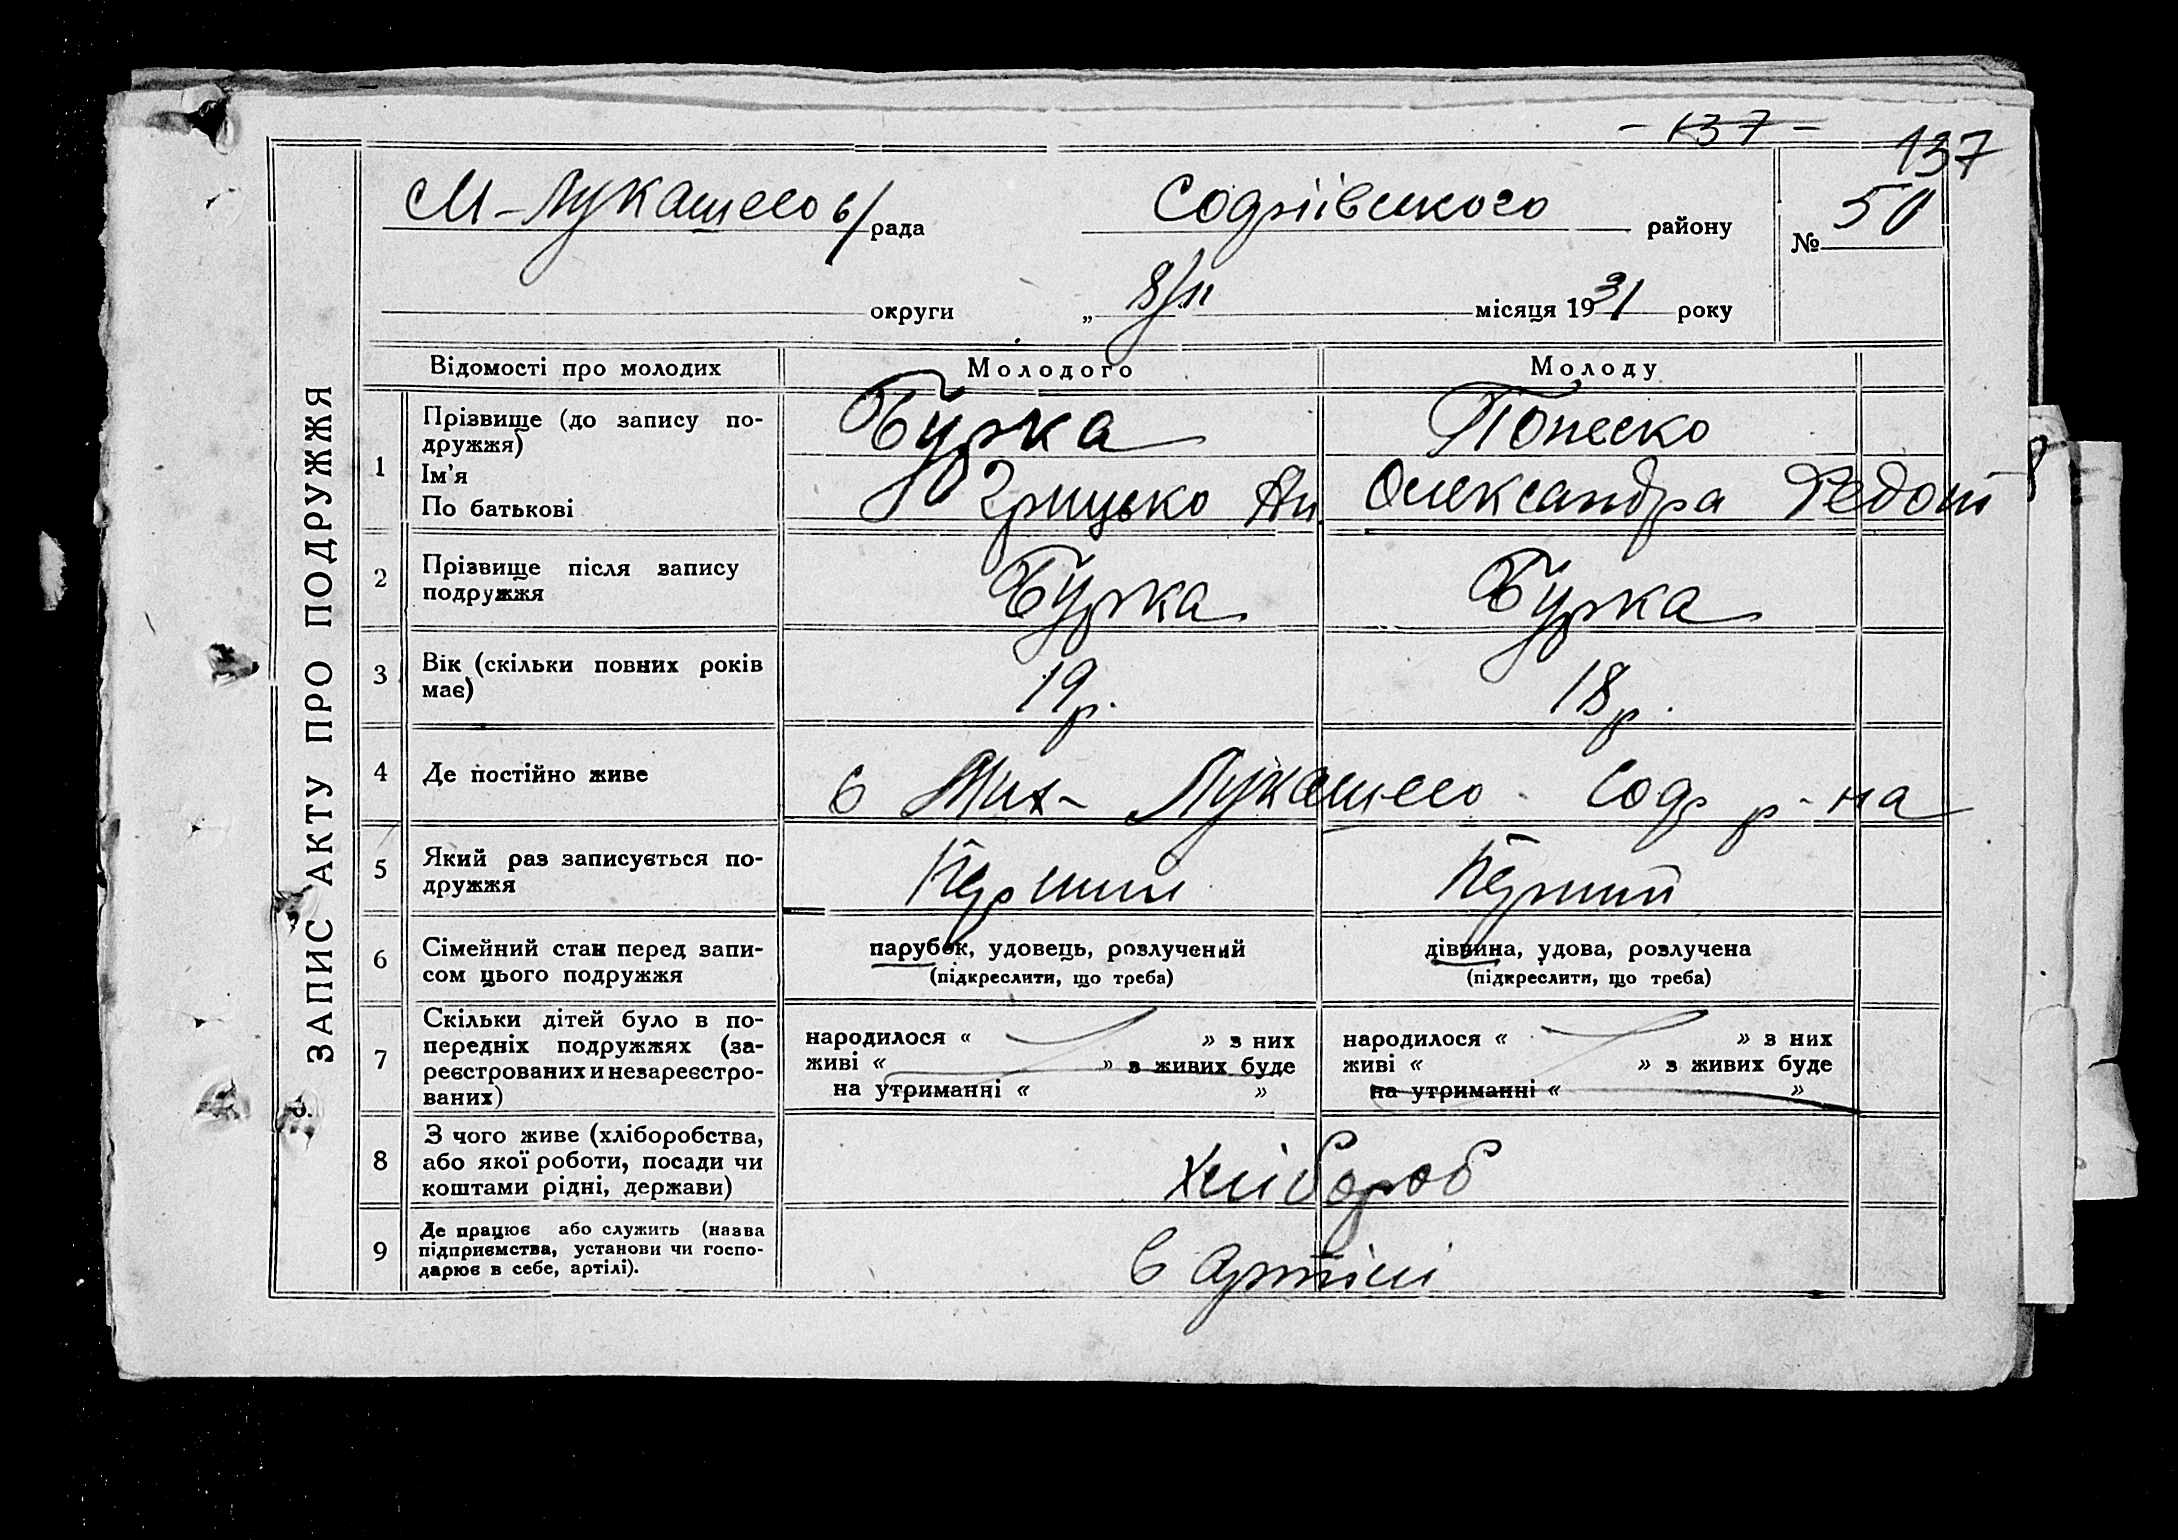 - 137 -
137
М-Лукашево в/рада Софіївського району № 50
округи „ 8/II місяця 1931 року
ЗАПИС АКТУ ПРО ПОДРУЖЖЯ
Відомості про молодих Молодого Молоду
1 Прізвище (до запису по-
дружжя)
Бурка
Ім’я
По батькові
Грицько Ан. Олександра Федот
2 Прізвище після запису
подружжя
Бурка Бурка
3 Вік (скільки повних років
має)
19 р. 18 р.
4 Де постійно живе
в Мих- Лукашево Соф р-на
5 Який раз записується по-
дружжя
Перший Перший
6 Сімейний стан перед запи-
сом цього подружжя
парубок, удовець, розлучений
(підкреслити, що треба)
дівчина, удова, розлучена
(підкреслити, що треба)
7 Скільки дітей було в по-
передніх подружжях (за-
реєстрованих и незареєстро-
ваних)
народилося « » з них
живі « » з живих буде
на утриманні « »
народилося « » з них
живі « » з живих буде
на утриманні « »
8 З чого живе (хліборобства,
або якої роботи, посади чи
коштами рідні, держави)
Хлібороб
9 Де працює або служить (назва
підприємства, установи чи госпо-
дарює в себе, артілі).
в артілі